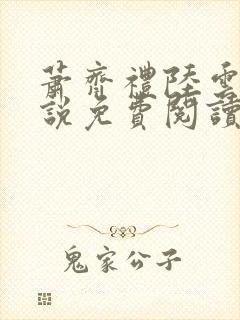 蕭齊禮陸雲
說免費閱讀
鬼家公子